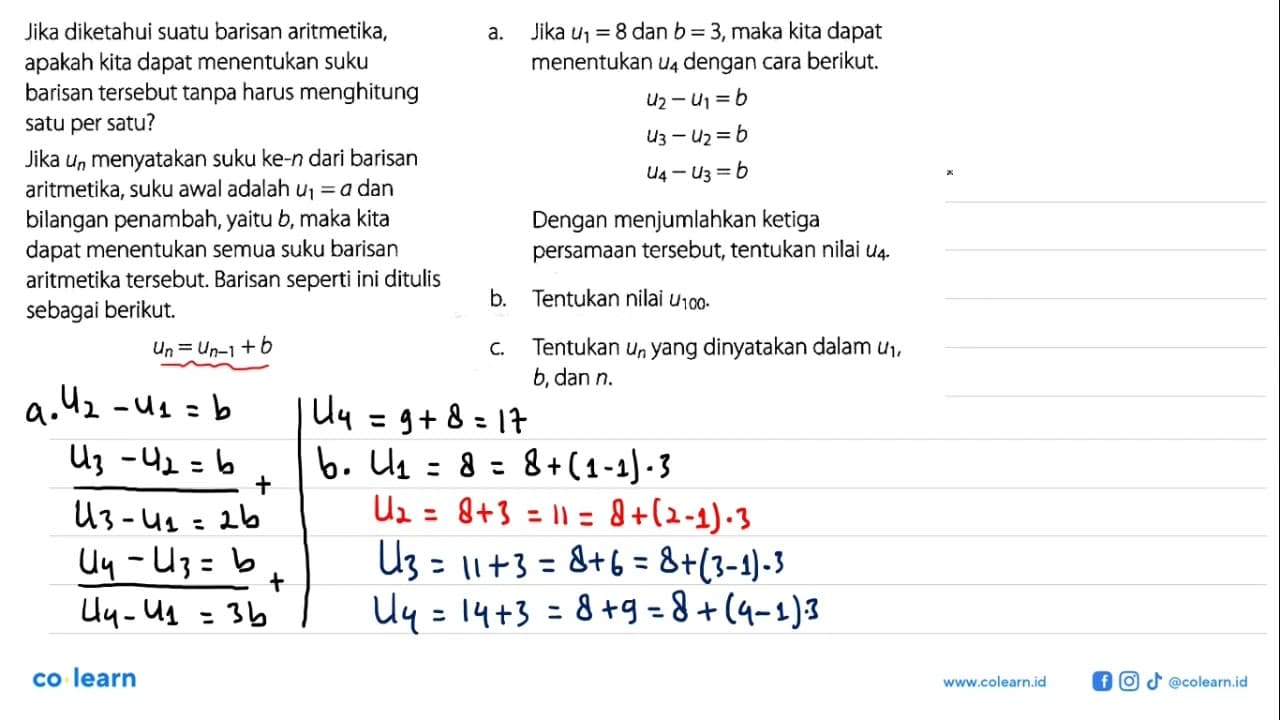 Jika diketahui suatu barisan aritmetika,
apakah kita dapat menentukan suku
barisan tersebut tanpa harus menghitung
satu per satu?
Jika uₙ menyatakan suku ke-n dari barisan
aritmetika, suku awal adalah u₁ = a dan
bilangan penambah, yaitu b, maka kita
dapat menentukan semua suku barisan
aritmetika tersebut. Barisan seperti ini ditulis
sebagai berikut.
uₙ = uₙ₋₁ + b
a. Jika u₁ = 8 dan b = 3, maka kita dapat
menentukan u₄ dengan cara berikut.
u₂ – u₁ = b
u₃ – u₂ = b
u₄ – u₃ = b
Dengan menjumlahkan ketiga
persamaan tersebut, tentukan nilai u₄.
b. Tentukan nilai u₁₀₀.
c. Tentukan uₙ yang dinyatakan dalam u₁,
b, dan n.
a. U₂ - U₁ = b
U₃ - U₂ = b +
U₃ - U₁ = 2b
U₄ - U₃ = b +
U₄ - U₁ = 3b
U₄ = 9 + 8 = 17
b. U₁ = 8 = 8 + (1-1).3
U₂ = 8+3 = 11 = 8+(2-1).3
U₃ = 11+3 = 8+6 = 8+(3-1).3
U₄ = 14+3 = 8+9 = 8+(4-1)3
co learn
www.colearn.id
@colearn.id